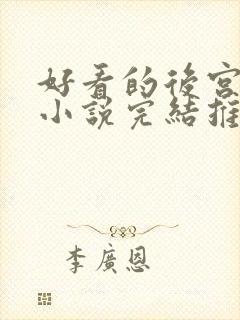 好看的後宮
小說完結推
李廣恩